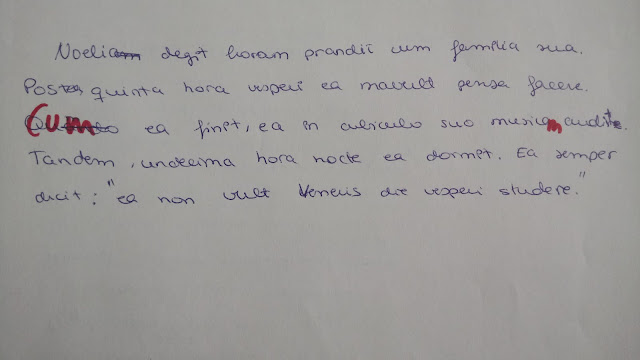 Noelia degit horam prandii cum familia sua.
Post quinta hora vesperi ea mavult pensa facere.
Cum ea finit, ea in cubiculo suo musicam audit.
Tandem, undecima hora nocte ea dormit. Ea semper
dicit: "ea non vult Veneris die vesperi studere."